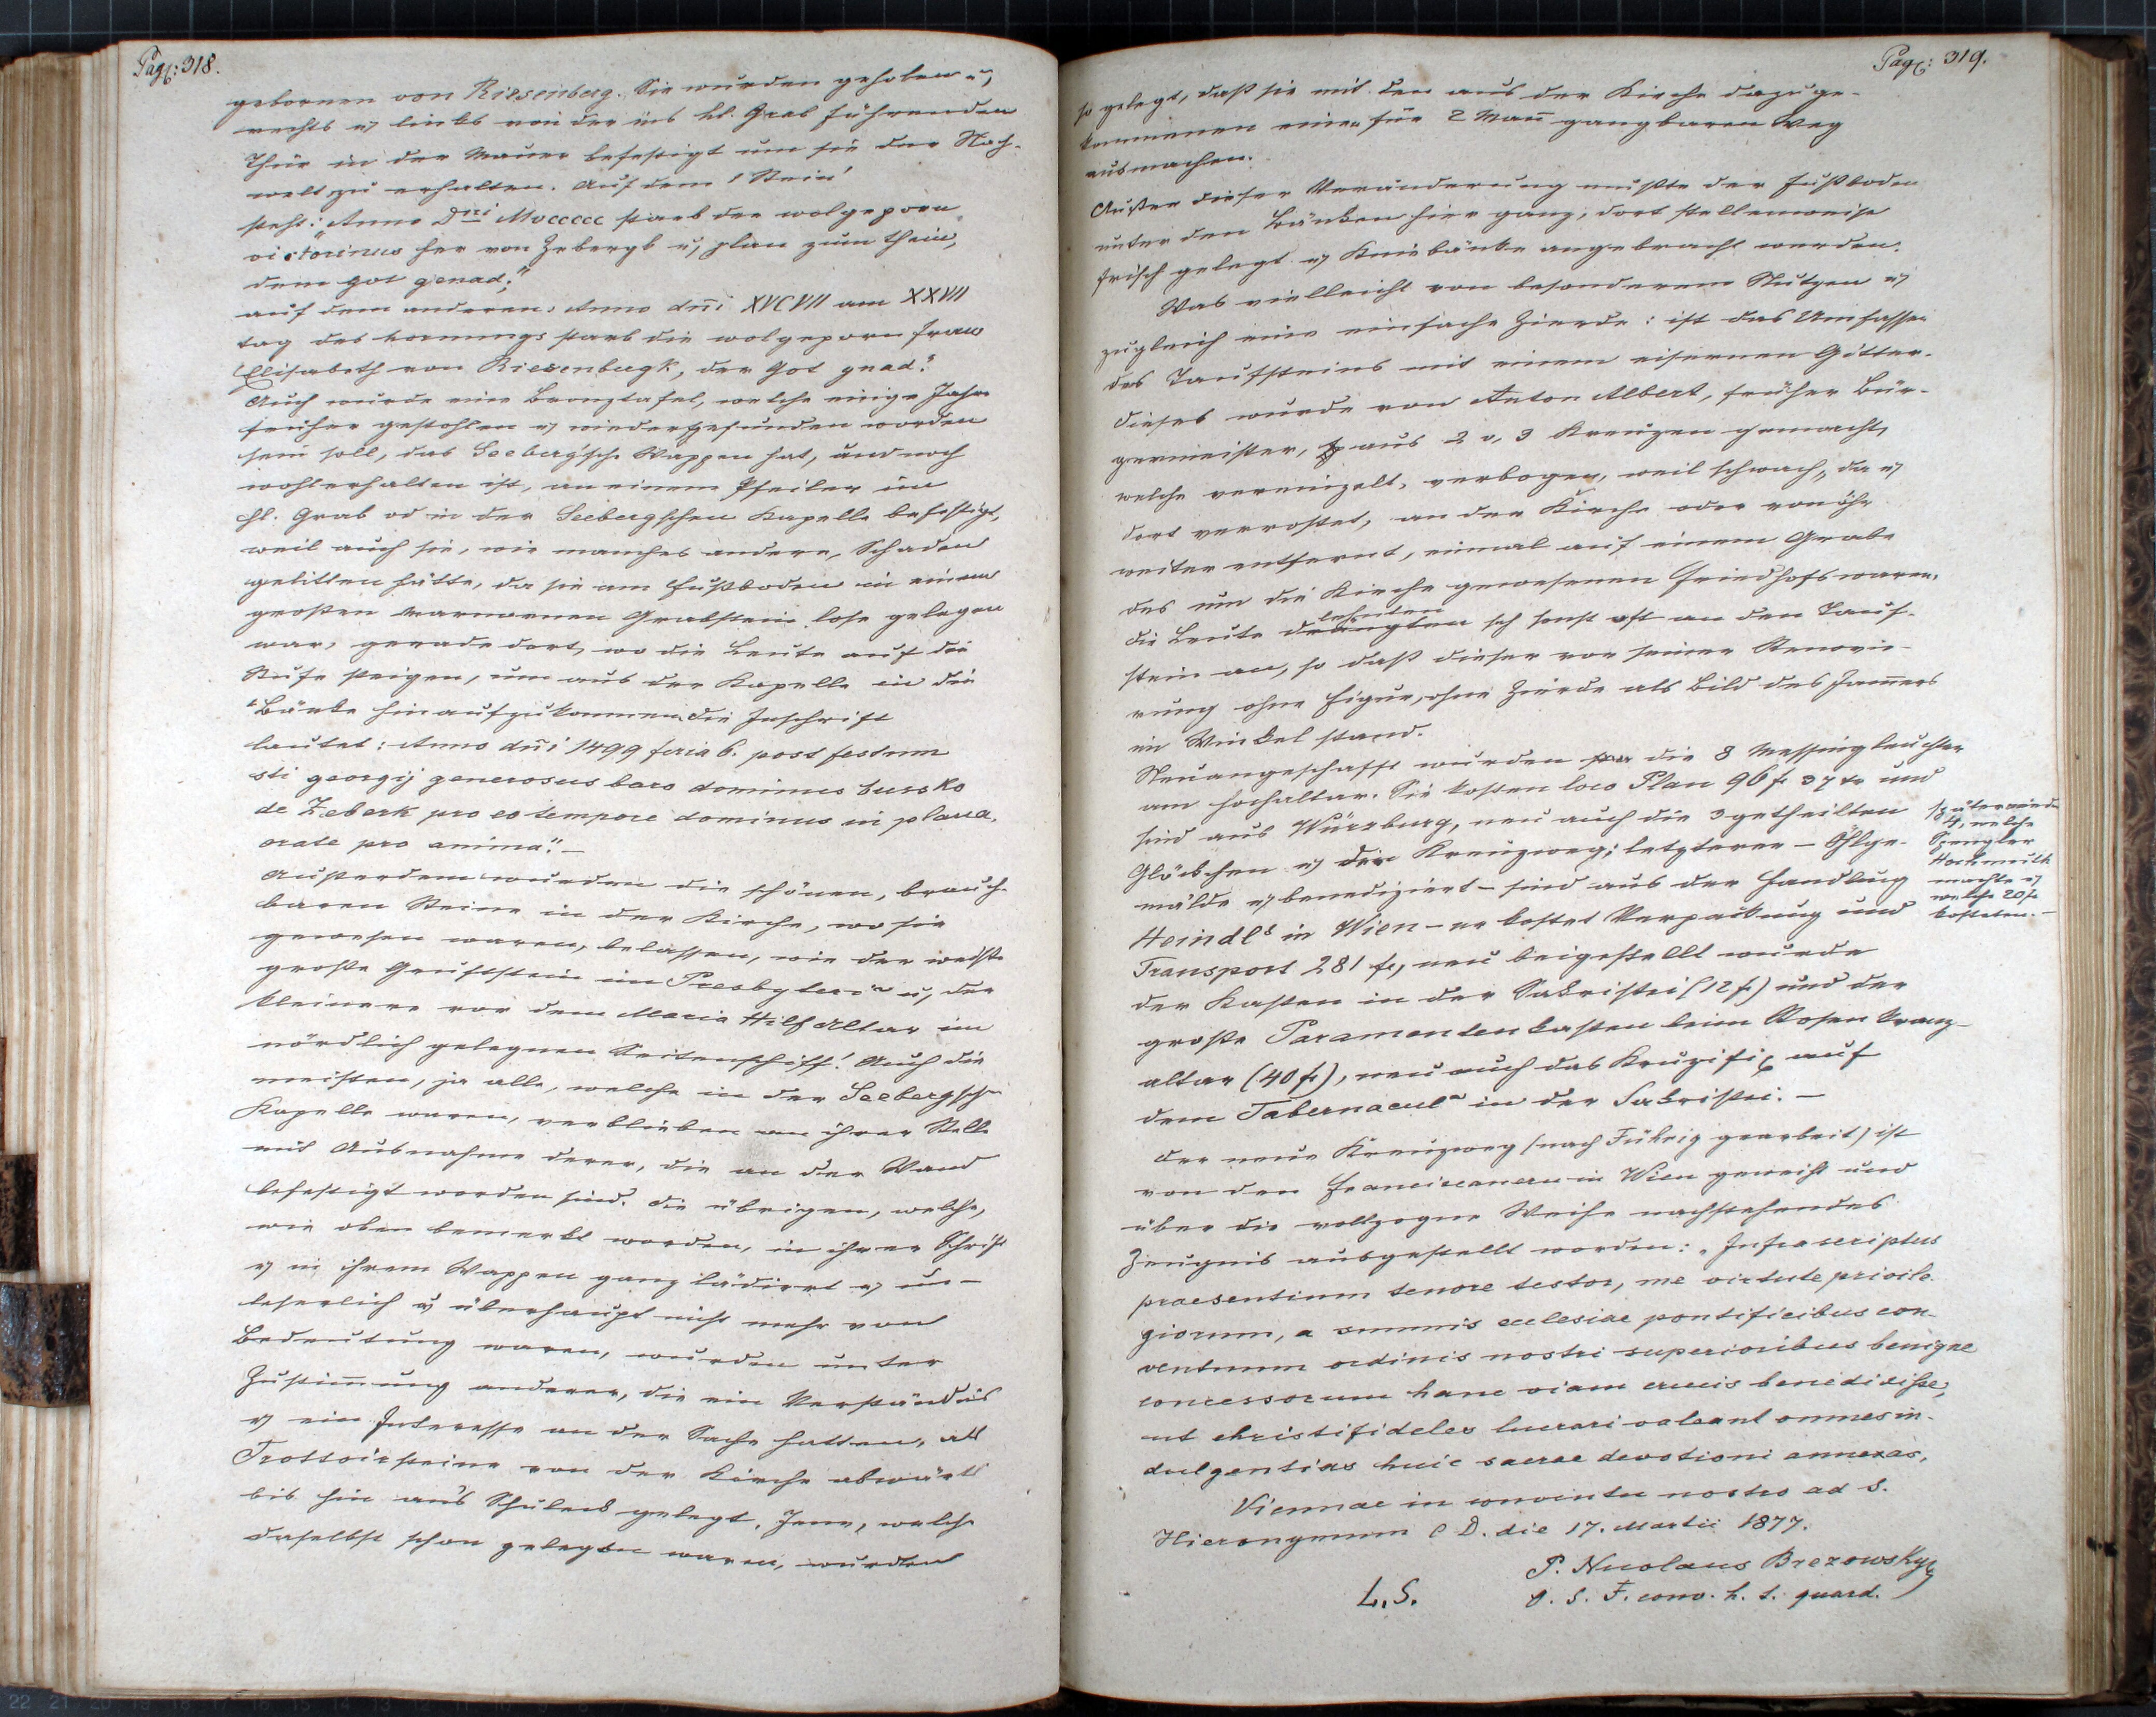 Pag: 318.
gebornen von Riesenberg. Sie wurden gehoben u,
rechts u, links von der ins hl. Grab führenden
Thür in der Mauer befestigt um sie der Nach-
welt zu erhalten. Auf dem 1 Stein
steht: "Anno Dni Mvccccc starb der wolgeporn
victorinus her von Zebergk u, plan zum thein,
dem got genad;"
auf dem anderen: Anno dni XVCVII am XXVII
tag des hornungs starb die wolgeporn frau
Elisabeth von Riesenburgk, der Got gnad."
Auch wurde eine Bronztafel, welche einige Jahre
früher gestohlen u, wiedergefunden worden
sein soll, das Seeberg'sche Wappen hat, und noch
wohlerhalten ist, an einem Pfeiler im
hl. Grab od in der Seebergschen Kapelle befestigt,
weil auch sie, wie manches andere, Schaden
gelitten hätte, da sie am Fußboden in einem
großen marmornen Grabstein lose gelegen
war, gerade dort, wo die Leute auf die
Stufe steigen, um aus der Kapelle in die
Bänke hinaufzukommen. Die Inschrift
lautet: Anno dni 1499 feria 6. post festum
sti georgij generosus baro dominus bussko
de Zeberk pro eo tempore dominus in plana,
orate pro anima." –
Außerdem wurden die schönen, brauch-
baren Steine in der Kirche, wo sie
gewesen waren, belassen, wie der weiße
große Gruftstein im Presbyteri~ u, der
kleinere vor dem Maria Hilf Altar im
nördlich gelegnen Seitenschiff! Auch die
meisten, ja alle, welche in der Seebergsch~
Kapelle waren, verblieben an ihrer Stelle
mit Ausnahme derer, die an der Wand
befestigt worden sind. Die übrigen, welche,
wie oben bemerkt worden, in ihrer Schrift
u, in ihrem Wappen ganz lädirt u, un-
leserlich u, überhaupt nicht mehr von
Bedeutung waren, wurden unter
Zustimmung anderer, die ein Verständnis
u, ein Interesse an der Sache hatten, als
Trottoirsteine von der Kirche abwärts
bis hin ans Schuleck gelegt. Jene, welche
daselbst schon gelegen waren, wurden
Pag: 319.
so gelegt, daß sie mit den aus der Kirche dazuge-
kommenen einen für 2 Mann gangbaren Weg
ausmachen.
Außer dieser Veränderung mußte der Fußboden
unter den Bänken hier ganz, dort stellenweise
frisch gelegt u, Kniebänke angebracht werden.
Was vielleicht von besonderem Nutzen u,
zugleich eine einfache Zierde: ist das Umfassen
des Taufsteins mit einem eisernen Gitter.
Dieses wurde von Anton Albert, früher Bür-
germeister, aus 2 o, 3 Kreuzen gemacht,
welche vereinzelt, verbogen, weil schwach, da u,
dort verrostet, an der Kirche oder von ihr
weiter entfernt, einmal auf einem Grabe
des um die Kirche gewesenen Friedhofs waren.
lehnten
Die Leute drängten sich sonst oft an den Tauf-
stein an, so daß dieser vor seiner Renovie-
rung ohne Figur, ohne Zierde als Bild des Jammers
im Winkel stand.
Neuangeschafft wurden die 8 Messingleuchter
am Hochaltar. Sie kosten loco Plan 96 f 37 kr und
sind aus Würzburg, neu auch die 3getheilten
Glöckchen u, der Kreuzweg; letzterer – Öhlge-
mälde u, benediziert – sind aus der Handlung
Heindls in Wien – er kostet Verpackung und
Transport 281 fr, neu beigestellt wurde
der Kasten in der Sakristei (12 f) und der
große Paramentenkasten beim Rosenkranz-
altar (40 fr), neu auch das Kruzifix auf
dem Tabernacul~ in der Sakristei. –
Später wurde
4, welche
Spengler
Hochmuth
machte u,
welche 20 f
kosteten. –
Der neue Kreuzweg (nach Führig gearbeit) ist
von den Franciscanern in Wien geweiht und
über die vollzogne Weihe nachstehendes
Zeugnis ausgestellt worden: „Infrascriptus
praesentium tenore testor, me virtute privile-
giorum, a summis ecclesiae pontificibus con-
ventuum ordinis nostri superioribus benigne
concessorum hanc viam crucis benedixisse,
ut christifideles lucrari valeant omnes in-
dulgentias huic sacrae devotioni annexas,
Viennae in conventu nostro ad S.
Hieronymum C D. die 17. Martii 1877.
P. Nicolaus Brezowsky
L. S.
O. S. F. conv. h. t. guard.